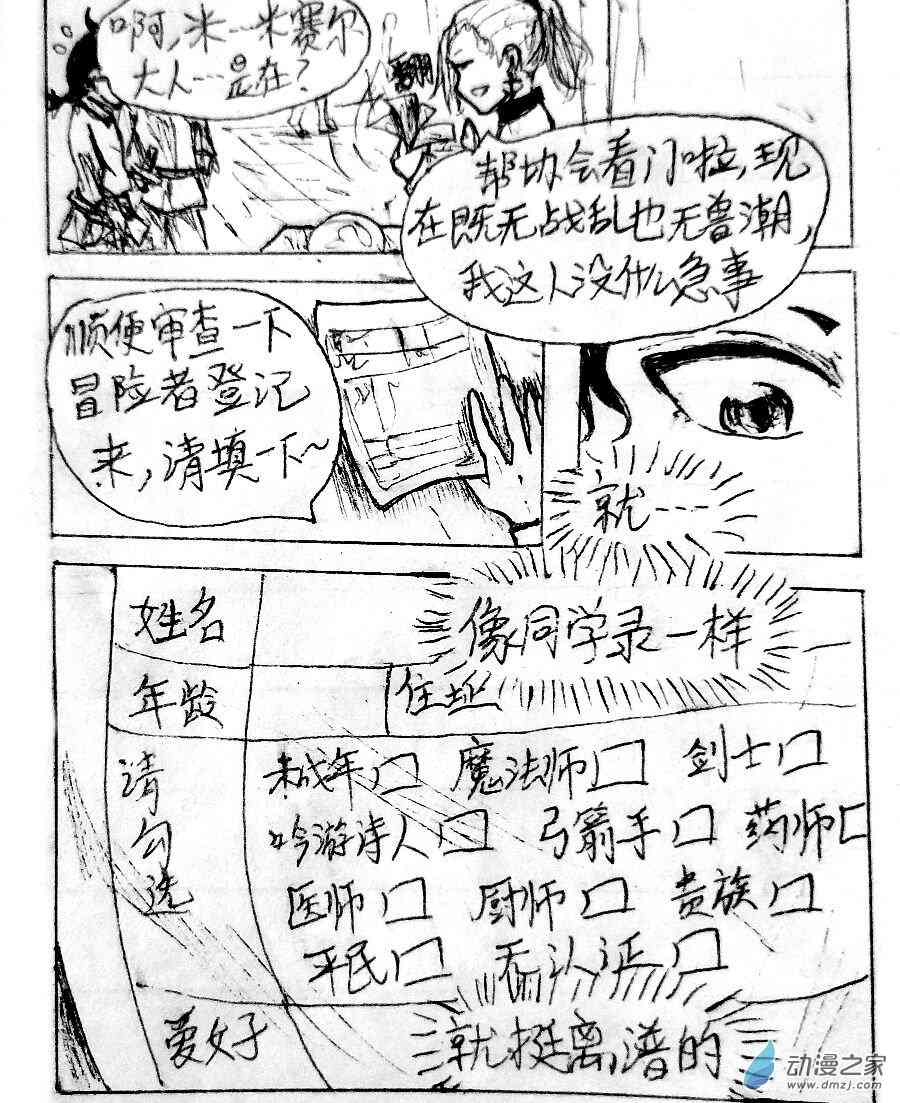 啊，米…米赛尔
大人…是在？
翻
帮协会看门啦，现
在既无战乱也无兽潮，
我这人没什么急事
顺便审查一下
冒险者登记
来，请填一下~
就……
像同学录一样
姓名
年龄
住址
请勾选
未成年口 魔法师口 剑士口
吟游诗人口 弓箭手口 药师口
医师口 厨师口 贵族口
平民口
爱好
就挺离谱的
动漫之家
www.dmzj.com